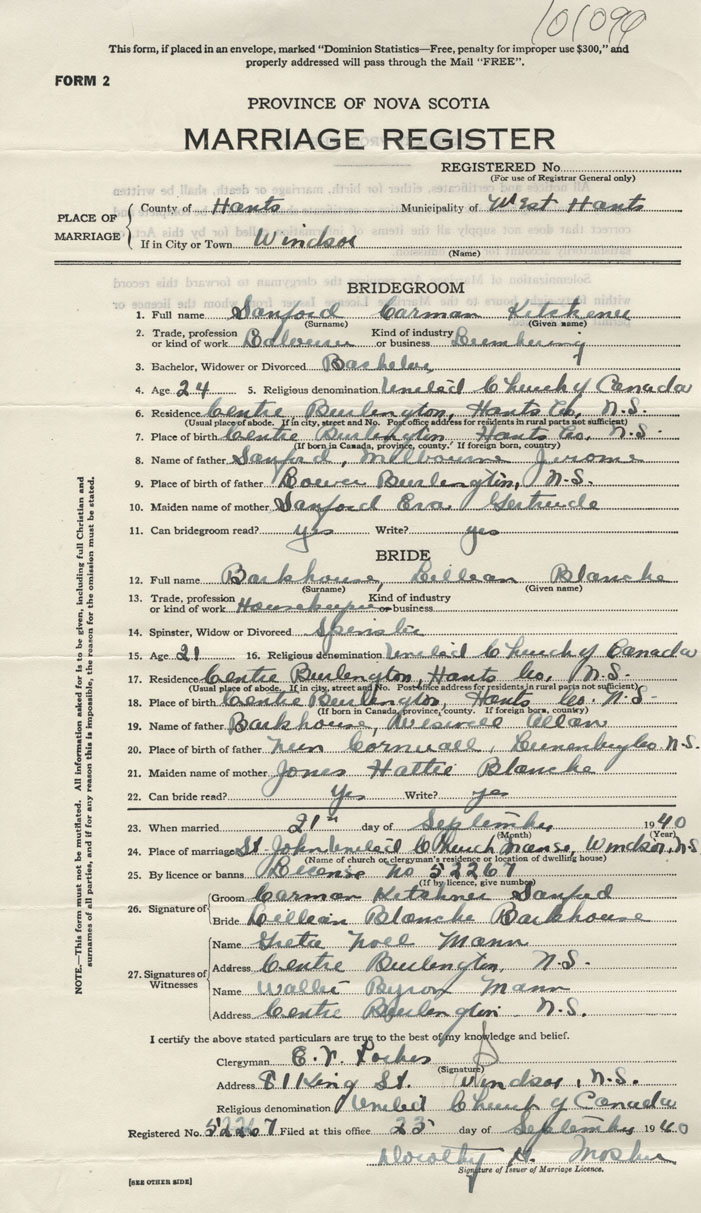 101099
This form, if placed in an envelope, marked "Dominion Statistics—Free, penalty for improper use $300," and
properly addressed will pass through the Mail "FREE".
FORM 2
PROVINCE OF NOVA SCOTIA
MARRIAGE REGISTER
REGISTERED No.
(For use of Registrar General only)
PLACE OF MARRIAGE
County of Hants Municipality of West Hants
If in City or Town Windsor
(Name)
BRIDEGROOM
1. Full name Sanford Carman Kitchener
(Surname) (Given name)
2. Trade, profession or kind of work Kind of industry or business Lumbering
3. Bachelor, Widower or Divorced Bachelor
4. Age 24 5. Religious denomination United Church of Canada
6. Residence Centre Burlington, Hants Co. N.S.
(Usual place of abode. If in city, street and No. Post office address for residents in rural parts not sufficient)
7. Place of birth Centre Burlington Hants Co. N.S.
(If born in Canada, province, county. If foreign born, country)
8. Name of father Sanford, Milbourne Jerome
9. Place of birth of father Burlington, N.S.
10. Maiden name of mother Sanford Eva Gertrude
11. Can bridegroom read? yes Write? yes
BRIDE
12. Full name Barkhouse, Lillean Blanche
(Surname) (Given name)
13. Trade, profession or kind of work Housekeeper Kind of industry or business
14. Spinster, Widow or Divorced Spinster
15. Age 21 16. Religious denomination United Church of Canada
17. Residence Centre Burlington, Hants Co. N.S.
(Usual place of abode. If in city, street and No. Post office address for residents in rural parts not sufficient)
18. Place of birth Centre Burlington, Hants Co. N.S.
(If born in Canada, province, county. If foreign born, country)
19. Name of father Barkhouse, Allan
20. Place of birth of father New Cornwall, Lunenburg Co. N.S.
21. Maiden name of mother Jones Hattie Blanche
22. Can bride read? yes Write? yes
23. When married 21st day of September 1940
(Month) (Year)
24. Place of marriage St. John United Church Manse, Windsor, N.S.
(Name of church or clergyman's residence or location of dwelling house)
25. By licence or banns License no 52267
(If by licence, give number)
26. Signature of
Groom Carman Kitchner Sanford
Bride Lillean Blanche Barkhouse
27. Signatures of Witnesses
Name Greta Noel Mann
Address Centre Burlington, N.S.
Name Wallie Byron Mann
Address Centre Burlington N.S.
I certify the above stated particulars are true to the best of my knowledge and belief.
Clergyman
(Signature)
Address King St. Windsor, N.S.
Religious denomination United Church of Canada
Registered No. 52267 Filed at this office 23 day of September 1940
Dorothy H. Mosher
Signature of Issuer of Marriage Licence.
[SEE OTHER SIDE]
NOTE.—This form must not be mutilated. All information asked for is to be given, including full Christian and
surnames of all parties, and if for any reason this is impossible, the reason for the omission must be stated.